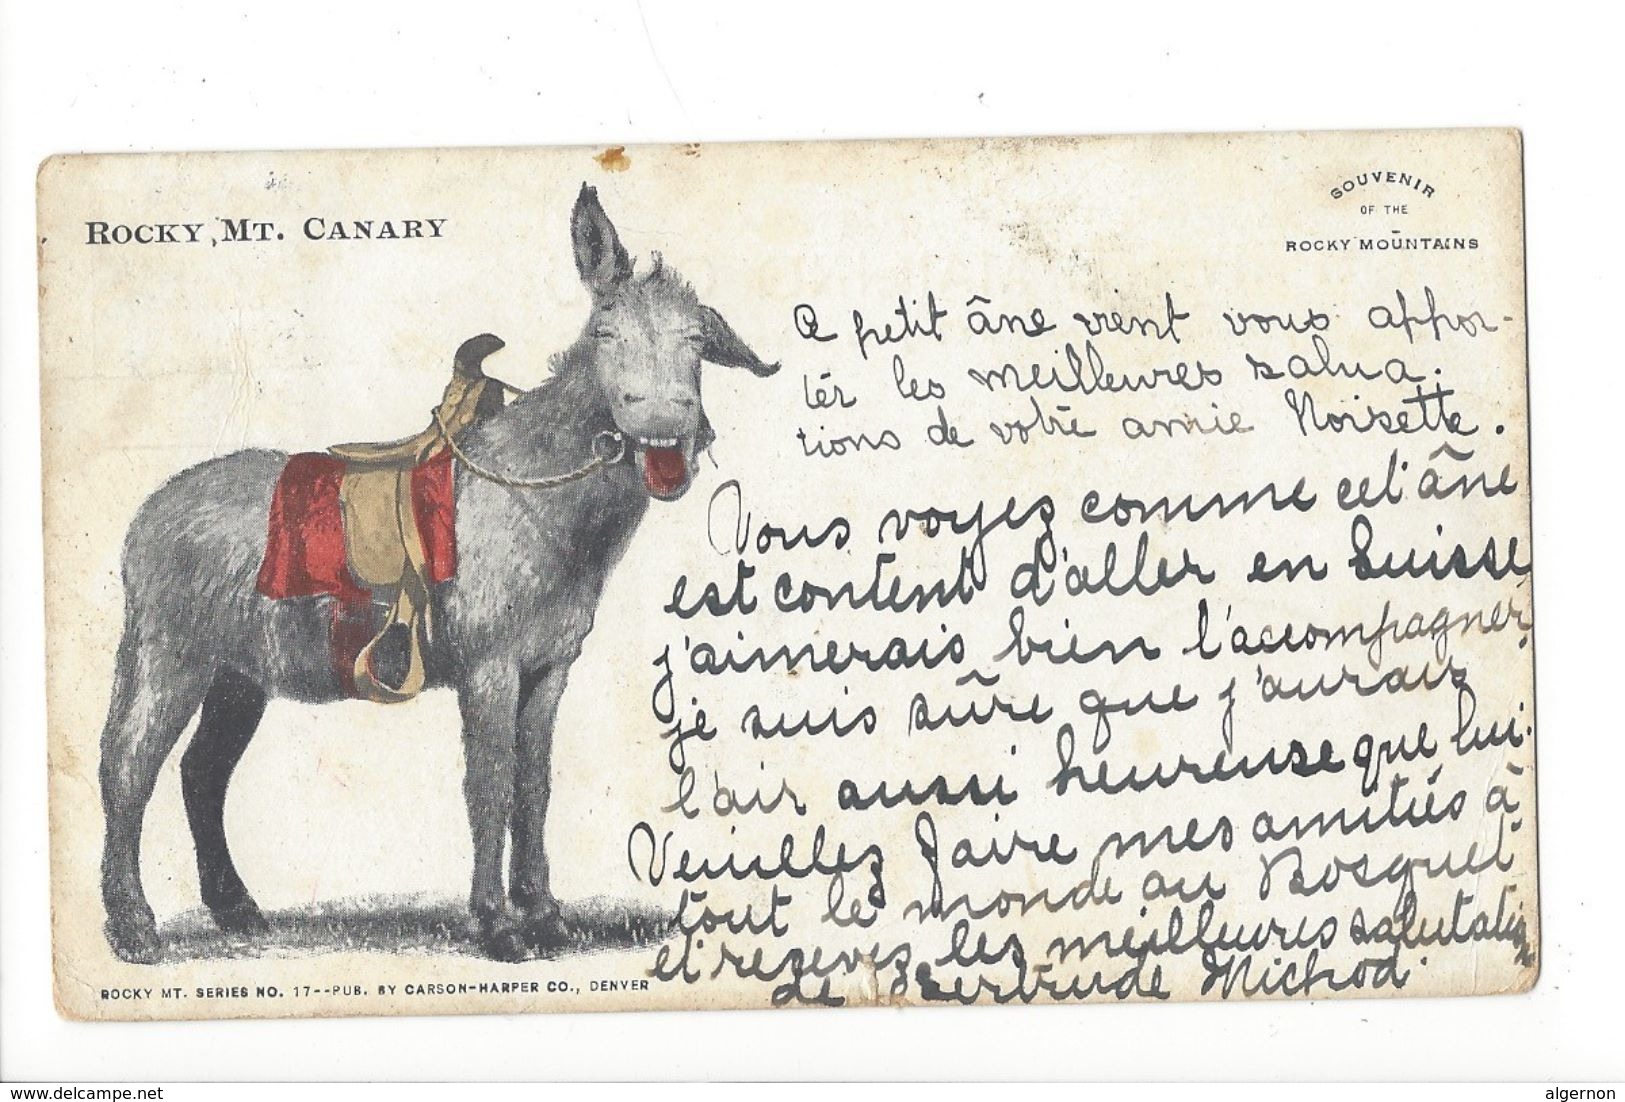 ROCKY MT. CANARY
SOUVENIR
OF THE
ROCKY MOUNTAINS
Ce petit âne vient vous appor-
ter les meilleures saluta.
tions de votre amie Noisette.
Vous voyez comme cet âne
est content d'aller en Suisse
j'aimerais bien l'accompagner,
je suis sûre que j'aurais
l'air aussi heureuse que lui.
Veuillez faire mes amitiés à
tout le monde au Bosquet
et recevez les meilleures salutations
de Gertrude Michod.
ROCKY MT. SERIES NO. 17--PUB. BY CARSON-HARPER CO., DENVER
www.delcampe.net
algernon